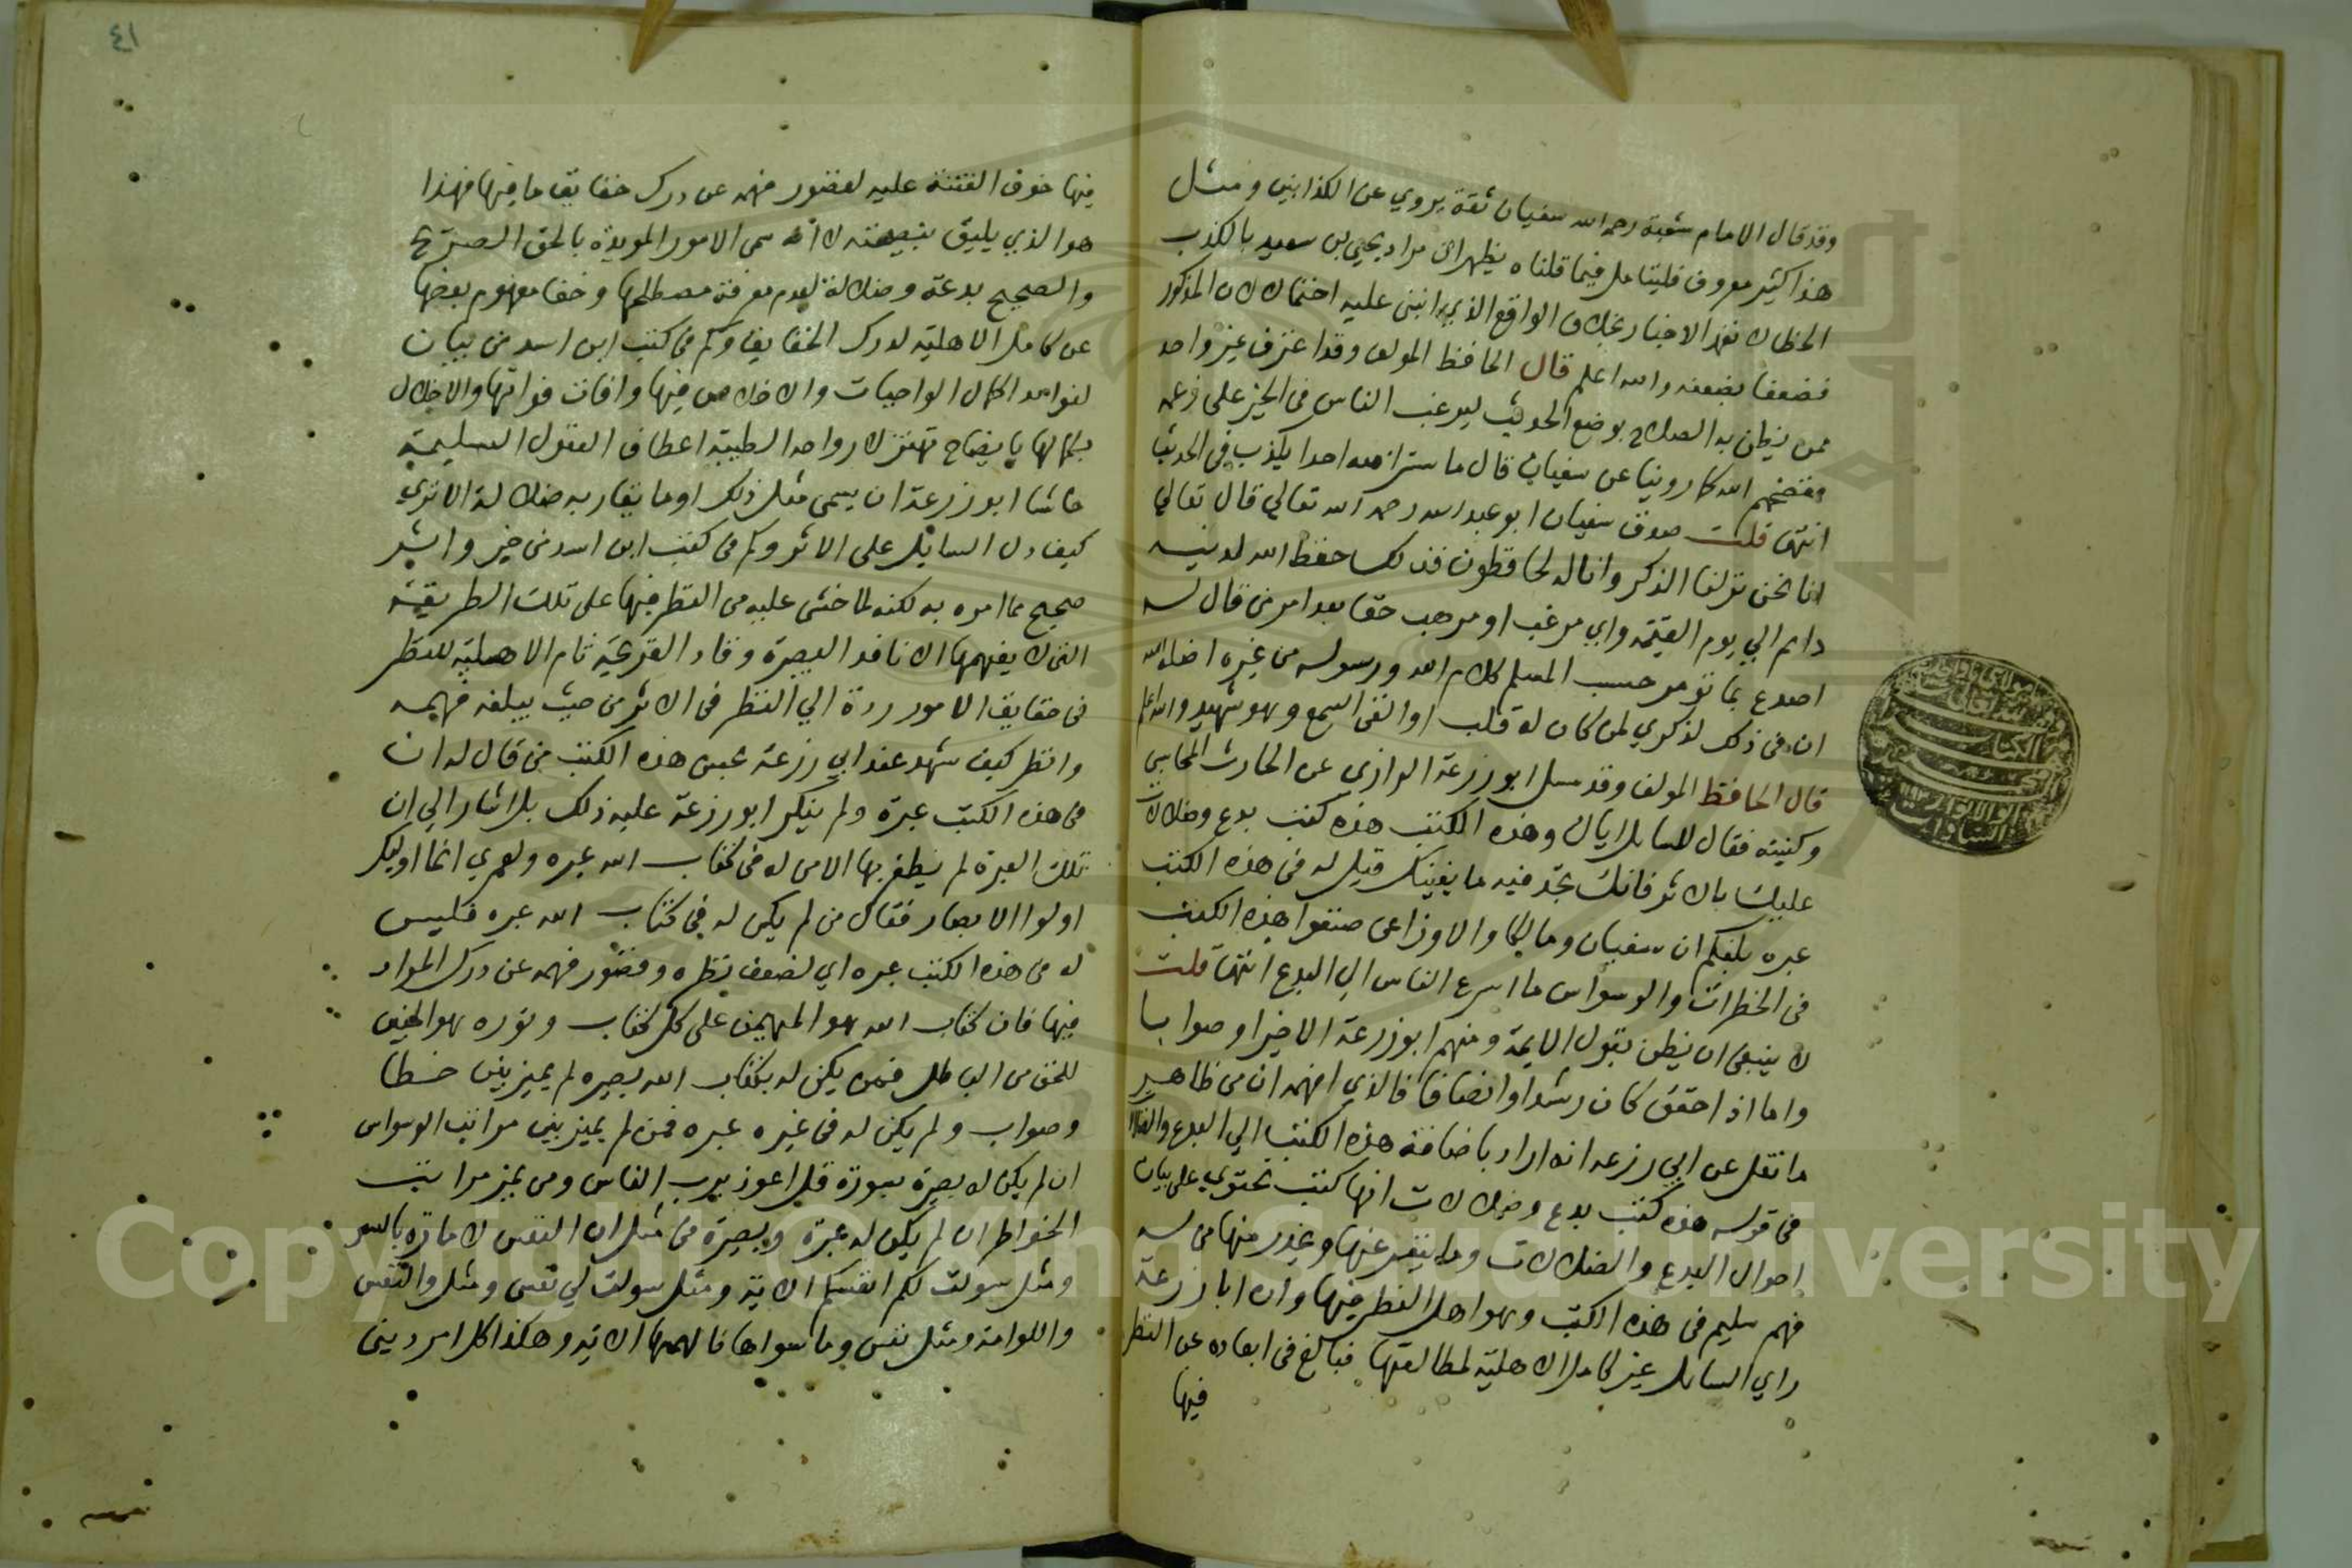 وقد قال الامام شعبة رحمه الله سفيان ثقة يروي عن الكذابين ومثل
هذا كثير معروف فليتامل فيما قلناه يظهر ان مراد يحيى بن سعيد بالكذب
الخطا لا تعمد الاخبار بخلاف الواقع الذي انبنى عليه احتمالان المذكور
فضعفا بضعفه والله اعلم قال الحافظ المولف وقد اعترف غير واحد
ممن يظن به الصلاح بوضع الحديث ليرغب الناس في الخير على زعمه
ففضحهم الله كما روينا عن سفيان قال ما ستر الله احدا يكذب في الحديث
انتهى قلت صدق سفيان ابو عبد الله رحمه الله تعالى قال تعالى
انا نحن نزلنا الذكر وانا له لحافظون فذلك حفظ الله لدينه
دايم الي يوم القيمة واي مرغب او مرهب حقا بعد امر من قال له
اصدع بما تومر حسب المسلم كلام الله ورسوله من غيره
ان في ذلك لذكري لمن كان له قلب او القى السمع وهو شهيد والله اعلم
قال الحافظ المولف وقد سيل ابو زرعة الرازي عن الحارث المحاسبي
وكتبه فقال للسايل اياك وهذه الكتب هذه كتب بدع وضلالات
عليك بالاثر فانك تجد فيه ما يغنيك قيل له في هذه الكتب
عبره بلغكم ان سفيان ومالكا والاوزاعي صنفوا هذه الكتب
في الخطرات والوسواس ما اسرع الناس الي البدع انتهى قلت
لا ينبغي ان يظن بقول الايمة ومنهم ابو زرعة الا خيرا وصوابا
واما اذا حقق كان رشدا وانصافا فالذي افهمه ان من ظاهر
ما نقل عن ابي زرعه انه اراد باضافة هذه الكتب الي البدع والضلال
في قوله هذه كتب بدع وضلالات انها كتب تحتوي على بيان
احوال البدع والضلالات وما ينفر عنها ويحذر منها من له
فهم سليم في هذه الكتب وهو اهل النظر فيها وان ابا زرعة
راي السايل غير كامل الاهلية لمطالعتها فبالغ في ابعاده عن النظر
فيها
٤١
فيها خوف الفتنة عليه لقصور فهمه عن درك حقايق ما فيها فهذا
هو الذي يليق بنصيحته لا انه سمى الامور المويدة بالحق الصريح
والصحيح بدعة وضلالة لعدم معرفة مصطلحها وخفا مفهوم بعضها
عن كامل الاهلية لدرك الحقايق وكم في كتب ابن اسد من بيان
لفوايد اكمال الواجبات والاخلاص فيها وافات فواتها والاخلال
بكمالها بايضاح تهتز لارواحه الطيبة اعطاف العقول السليمة
حاشا ابو زرعة ان يسمى مثل ذلك او ما يقاربه ضلالة الا تري
كيف دل السايل على الاثر وكم في كتب ابن اسد من خبر واثر
صحيح مما امره به لكنه لما خشى عليه من النظر فيها على تلك الطريقة
التي لا يفهمها الا نافد البصيرة وقاد القريحة تام الاهلية للنظر
في حقايق الامور رده الي النظر في الاثر من حيث يبلغه فهمه
وانظر كيف شهد عند ابي زرعة بحسن هذه الكتب من قال له ان
في هذه الكتب عبرة ولم ينكر ابو زرعة عليه ذلك بل اشار الي ان
تلك العبرة لم يظفر بها الا من له في كتاب الله عبره ولعمري انما اوليك
اولوا الابصار فقال من لم يكن له في كتاب الله عبره فليس
له في هذه الكتب عبره اي لضعف نظره وقصور فهمه عن درك المراد
فيها فان كتاب الله هو المهيمن على كل كتاب ونوره هو المبين
للحق من الباطل فمن لم يكن له بكتاب الله بصيره لم يميز بين خطا
وصواب ولم يكن له في غيره عبره فمن لم يميز بين مراتب الوسواس
ان لم يكن له بصيرة بسورة قل اعوذ برب الناس ومن يميز مراتب
الخواطر ان لم يكن له عبرة وبصيرة في مثل ان النفس لامارة بالسو
ومثل سولت لكم انفسكم الاية ومثل سولت لي نفسي ومثل والنفس
واللوامة ومثل نفس وما سواها فالهمها الاية وهكذا كل امر ديني
Copyright © King Saud University